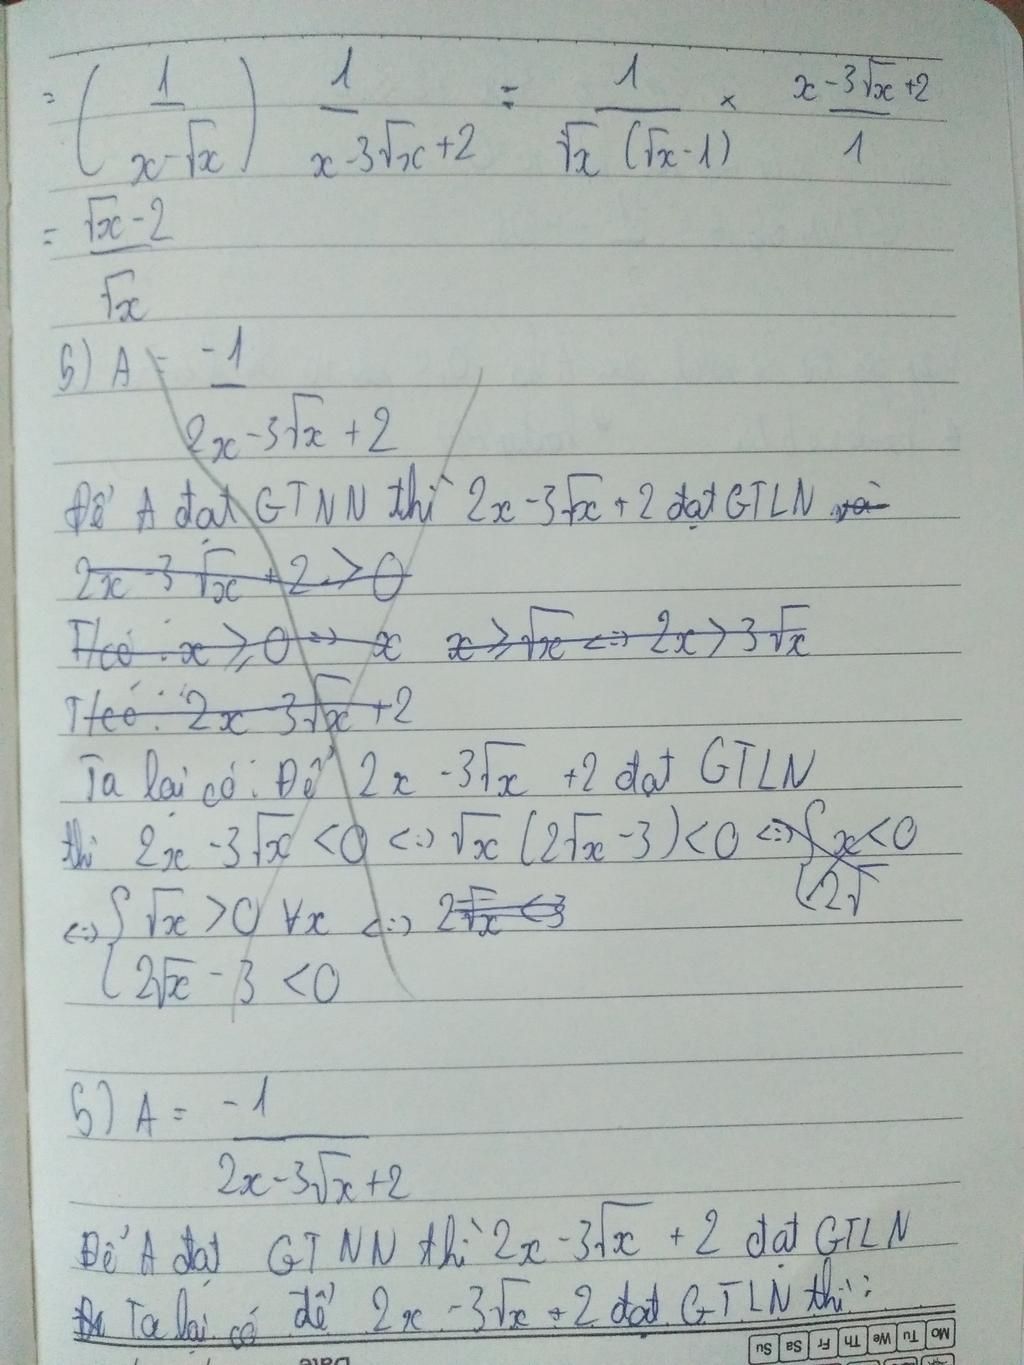 = ( 1 / (x - √x) ) 1 / (x - 3√x + 2) = 1 / (√x (√x - 1)) × (x - 3√x + 2) / 1
= (√x - 2) / √x
5) A = -1 / (2x - 3√x + 2)
Để A đạt GTNN thì 2x - 3√x + 2 đạt GTLN
2x - 3√x + 2 > 0
T/có : x ⩾ 0 => x x ⩾ √x <=> 2x > 3√x
T/có : 2x - 3√x + 2
Ta lại có : Để 2x - 3√x + 2 đạt GTLN
thì 2x - 3√x < 0 <=> √x (2√x - 3) < 0 <=> { x < 0
2√
<=> { √x > 0 ∀x <=> 2√x < 3
2√x - 3 < 0
5) A = -1 / (2x - 3√x + 2)
Để A đạt GTNN thì 2x - 3√x + 2 đạt GTLN
Ta lại có để 2x - 3√x + 2 đạt GTLN thì :
Mo Tu We Th Fr Sa Su
Date